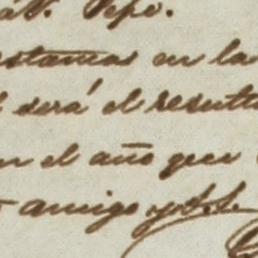 Pepe.
estamos en la
será el resulta
en el año que
amigo y S. S.